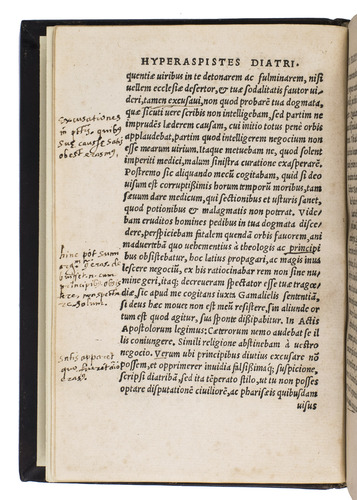 HYPERASPISTES DIATRI-
quentiæ viribus in te detonarem ac fulminarem, nisi
vellem ecclesiæ desertor, & tuæ sodalitatis fautor vi
deri, tamen excusavi, non quod probarē tua dogmata,
quæ sicuti vere scribis non intelligebam, sed partim ne
imprudēs læderem causam, cui initio totus pene orbis
applaudebat, partim quod intelligerem negocium non
esse mearum virium. itaque metuebam ne, quod solent
imperiti medici, malum sinistra curatione exasperarē.
Postremo sic aliquando mecū cogitabam, quid si deo
visum est corruptißimis horum temporū moribus, tam
sævum dare medicum, qui sectionibus et usturis sanet,
quod potionibus & malagmatis non poterat. Vide/
bam eruditos homines pedibus in tua dogmata disce/
dere, perspiciebam fatalem quendā orbis favorem, ani
madvertebā quo vehementius à theologis ac principi
bus obsistebatur, hoc latius propagari, ac magis inva
lescere negociū, ex his ratiocinabar rem non sine nu,
mine geri, itaq; decreveram spectator esse tuæ tragœ/
diæ, sic apud me cogitans iuxta Gamalielis sententiā,
si deus hæc movet non est meū resistere, sin aliunde or
tum est quod agitur, sua sponte dißipabitur. In Actis
Apostolorum legimus: Cæterorum nemo audebat se il
lis coniungere. Simili religione abstinebam à vestro
negocio. Verum ubi principibus diutius excusare nō
possem, et opprimerer invidia falsißimæq; suspicione,
scripsi diatribā, sed ita tēperato stilo, ut tu non posses
optare disputationē civiliorē, ac pharisæis quibusdam
visus
Excusationes
quibus
suæ causæ satis
obest erasm9,
hinc pōt
principibus
Satis apparet
quo